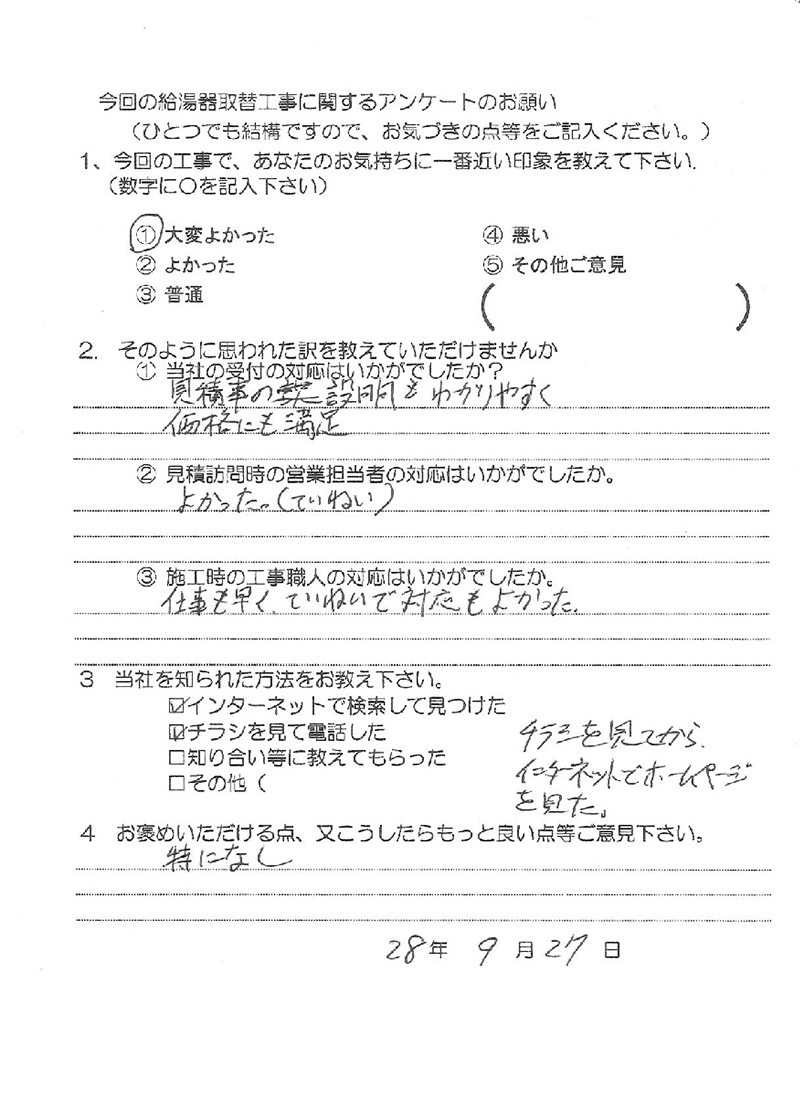 今回の給湯器取替工事に関するアンケートのお願い
（ひとつでも結構ですので、お気づきの点等をご記入ください。）
1、今回の工事で、あなたのお気持ちに一番近い印象を教えて下さい.
（数字に〇を記入下さい）
① 大変よかった
② よかった
③ 普通
④ 悪い
⑤ その他ご意見
（ ）
2. そのように思われた訳を教えていただけませんか
① 当社の受付の対応はいかがでしたか？
見積事の説明もわかりやすく
価格にも満足
② 見積訪問時の営業担当者の対応はいかがでしたか。
よかった。(ていねい)
③ 施工時の工事職人の対応はいかがでしたか。
仕事も早く、ていねいで対応もよかった.
3 当社を知られた方法をお教え下さい。
☑インターネットで検索して見つけた
☑チラシを見て電話した
□知り合い等に教えてもらった
□その他（
チラシを見てから、
インターネットでホームページ
を見た。
4 お褒めいただける点、又こうしたらもっと良い点等ご意見下さい。
特になし
28年 9月27日